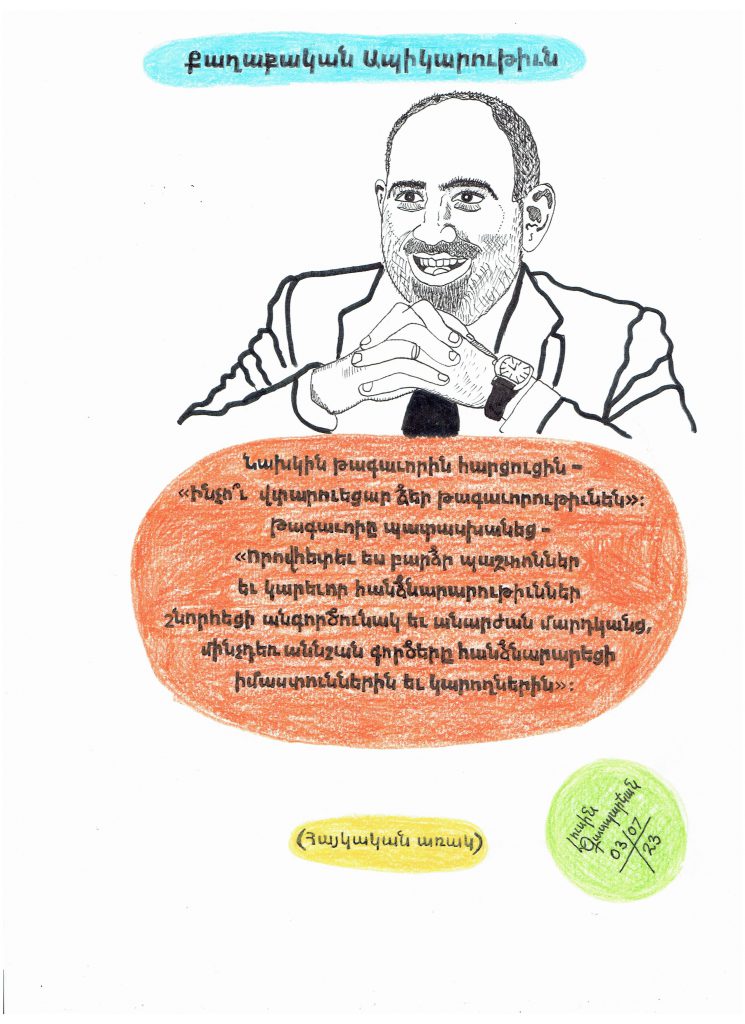 Քաղաքական Ապիկարութիւն
Նախկին թագաւորին հարցուցին –
«Ինչո՞ւ վտարուեցար ձեր թագաւորութիւնեն»:
Թագաւորը պատասխանեց –
«Որովհետեւ ես բարձր պաշտոններ
եւ կարեւոր հանձնարարութիւններ
շնորհեցի անգործունակ եւ անարժան մարդկանց,
մինչդեռ աննշան գործերը հանձնարարեցի
իմաստուններին եւ կարողներին»:
(Հայկական առակ)
03/07/23